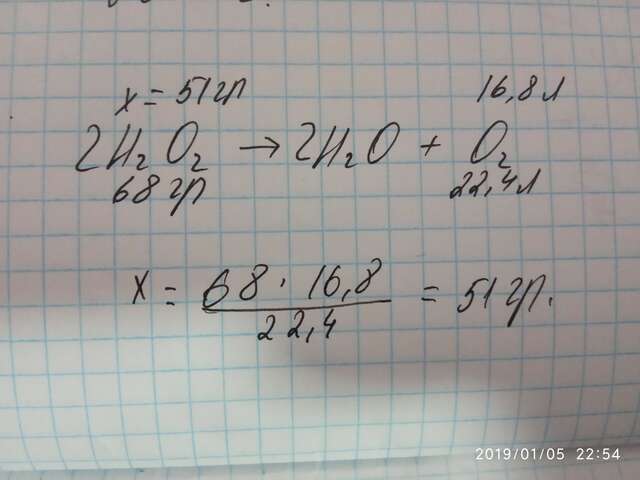 x = 51 гр 16,8 л
2H₂O₂ → 2H₂O + O₂
68 гр 22,4 л
x = 68 · 16,8 / 22,4 = 51 гр.
2019/01/05 22:54